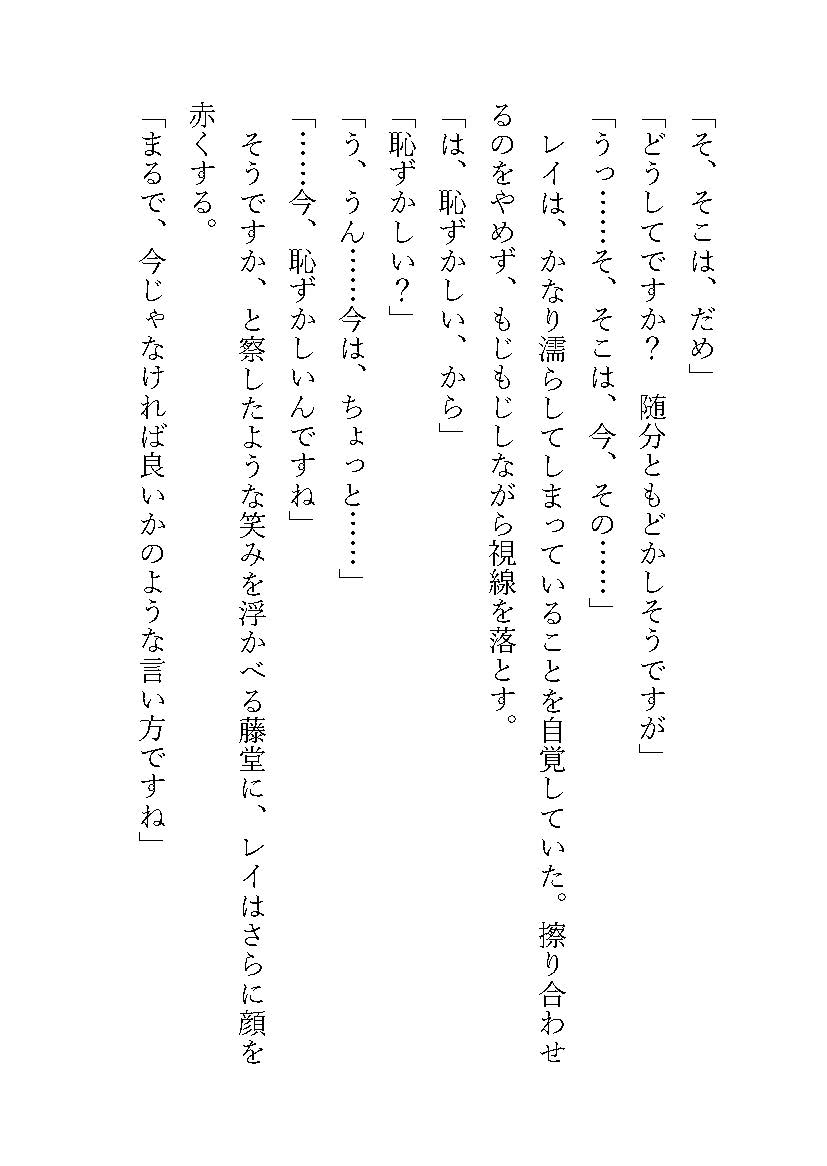 「そ、そこは、だめ」
「どうしてですか？　随分ともどかしそうですが」
「うっ……そ、そこは、今、その……」
　レイは、かなり濡らしてしまっていることを自覚していた。擦り合わせ
るのをやめず、もじもじしながら視線を落とす。
「は、恥ずかしい、から」
「恥ずかしい？」
「う、うん……今は、ちょっと……」
「……今、恥ずかしいんですね」
　そうですか、と察したような笑みを浮かべる藤堂に、レイはさらに顔を
赤くする。
「まるで、今じゃなければ良いかのような言い方ですね」